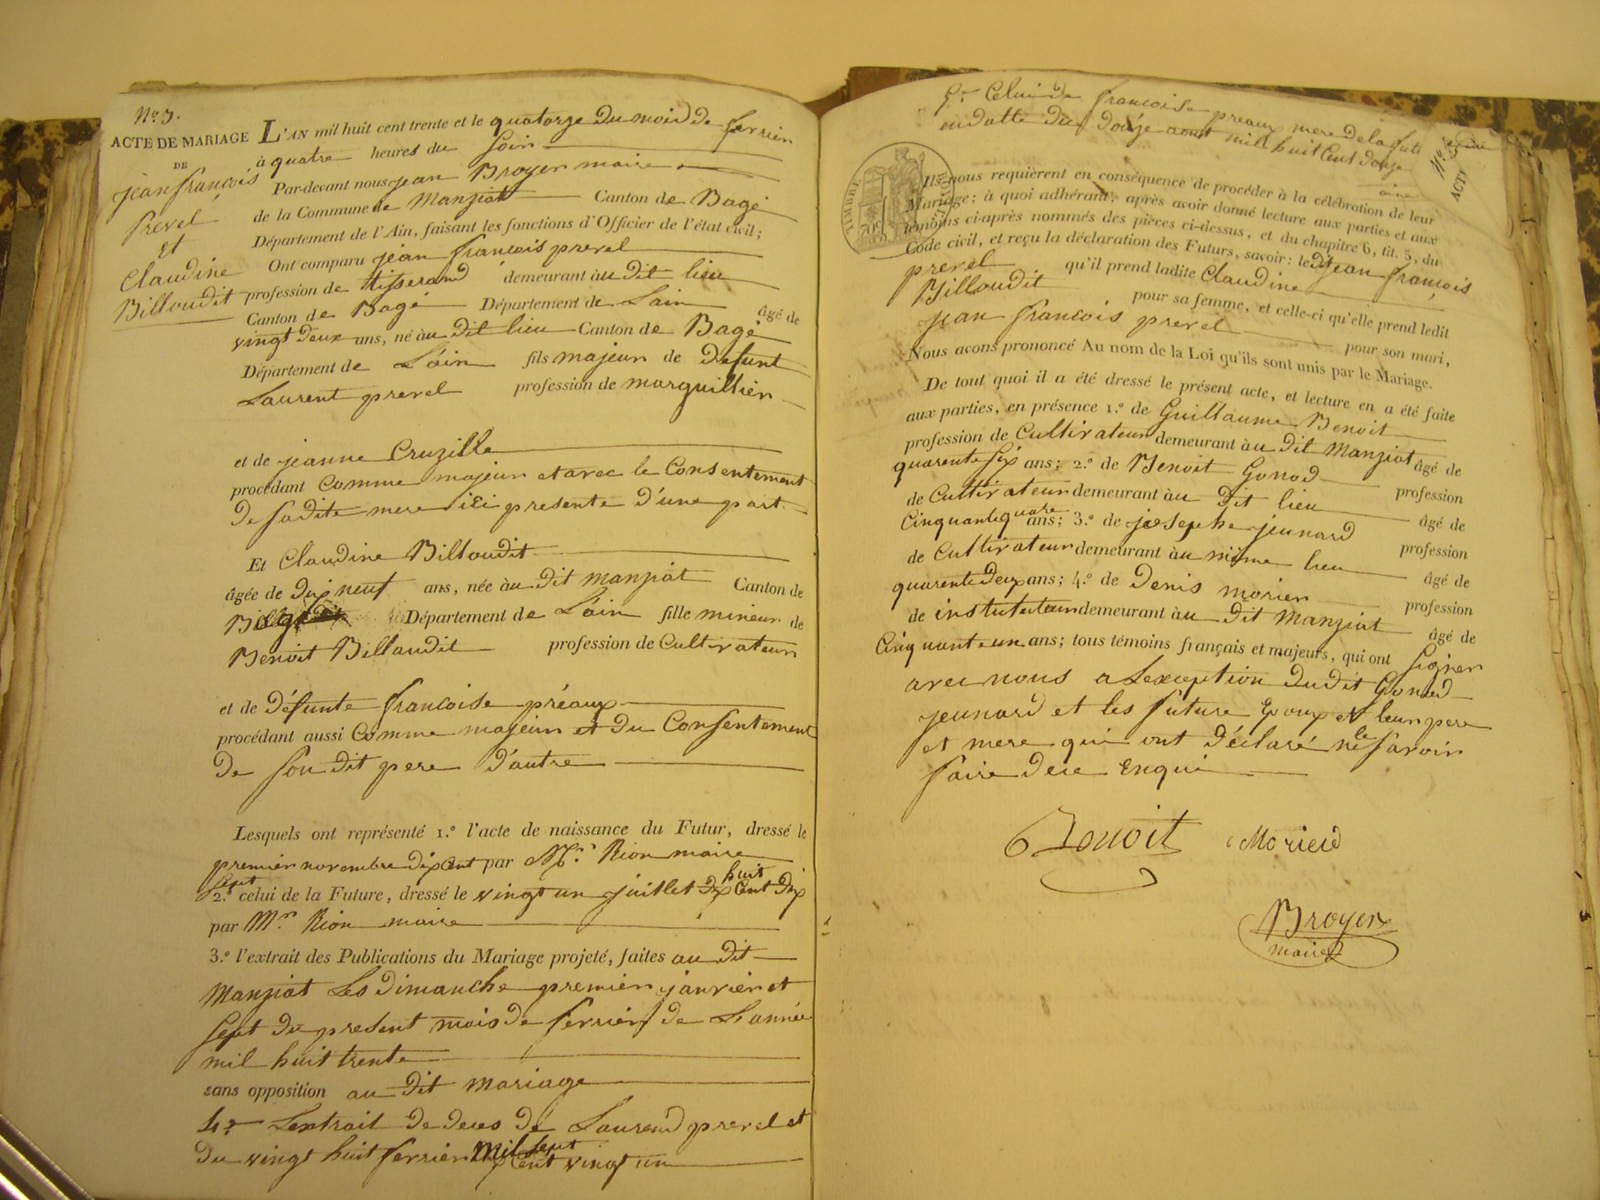 N° 5.
ACTE DE MARIAGE
DE
jean françois
Prevel
et
Claudine
Billoudit
L'AN mil huit cent trente et le quatorze du mois de fevrier
à quatre heures du soir
Par-devant nous jean Broyer maire
de la Commune de Manziat Canton de Bagé
Département de l'Ain, faisant les fonctions d'Officier de l'état civil;
Ont comparu jean francois prevel
profession de tisserand demeurant au dit lieu
Canton de Bagé Département de Lain âgé de
vingt deux ans, né àu dit lieu Canton de Bagé
Département de Láin fils majeur de defunt
Laurent prevel profession de marguillier
et de jeanne Cruzille
procédant comme majeur et avec le Consentement
de sadite mere ici presente d'une part
Et Claudine Billoudit
âgée de dix neuf ans, née àu dit manziat Canton de
Bagé Département de Láin fille mineur de
Benoit Billoudit profession de Cultivateur
et de défunte francoise préaux
procédant aussi Comme majeur et du Consentement
de son dit pere d'autre
Lesquels ont représenté 1.° l'acte de naissance du Futur, dressé le
premier novembre dix cent sept par Mr. Rion maire
2.° celui de la Future, dressé le vingt un juillet dix huit Cent dix
par Mr Rion maire
3.° l'extrait des Publications du Mariage projeté, faites au dit
Manziat Les dimanche premier janvier et
sept du present mois de fevrier de L'année
mil huit trente
sans opposition au dit mariage
4° Lextrait de deces de Laurend prevel et
du vingt huit fevrier mil sept Cent vingt un
5° Celui de francoise preaux mere de la fute
en datte du douze aout mil huit Cent douze
TIMBRE
Ils nous requièrent en conséquence de procéder à la célébration de leur
Mariage; à quoi adhérant, après avoir donné lecture aux parties et aux
témoins ci-après nommés des pièces ci-dessus, et du chapitre 6, tit. 5, du
Code civil, et reçu la déclaration des Futurs, savoir: ledit jean françois
prevel qu'il prend ladite Claudine
Billoudit pour sa femme, et celle-ci qu'elle prend ledit
jean francois prevel pour son mari,
Nous avons prononcé Au nom de la Loi qu'ils sont unis par le Mariage.
De tout quoi il a été dressé le présent acte, et lecture en a été faite
aux parties, en présence 1.° de Guillaume Benoit
profession de Cultivateur demeurant àu dit Manziat âgé de
quarente six ans; 2.° de Benoit Gonod profession
de Cultivateur demeurant àu dit lieu âgé de
Cinquante quatre ans; 3.° de josephe jeunard profession
de Cultivateur demeurant àu même lieu âgé de
quarente deux ans; 4.° de Denis morier profession
de instituteur demeurant àu dit Manziat âgé de
Cinquante un ans; tous témoins français et majeurs, qui ont signer
avec nous a Lexception dudit Gonod
jeunard et les future Epoux et leur pere
et mere qui ont déclaré ne le savoir
faire dece enqui
Benoit Morier
Broyer
maire
N° 5
ACTE